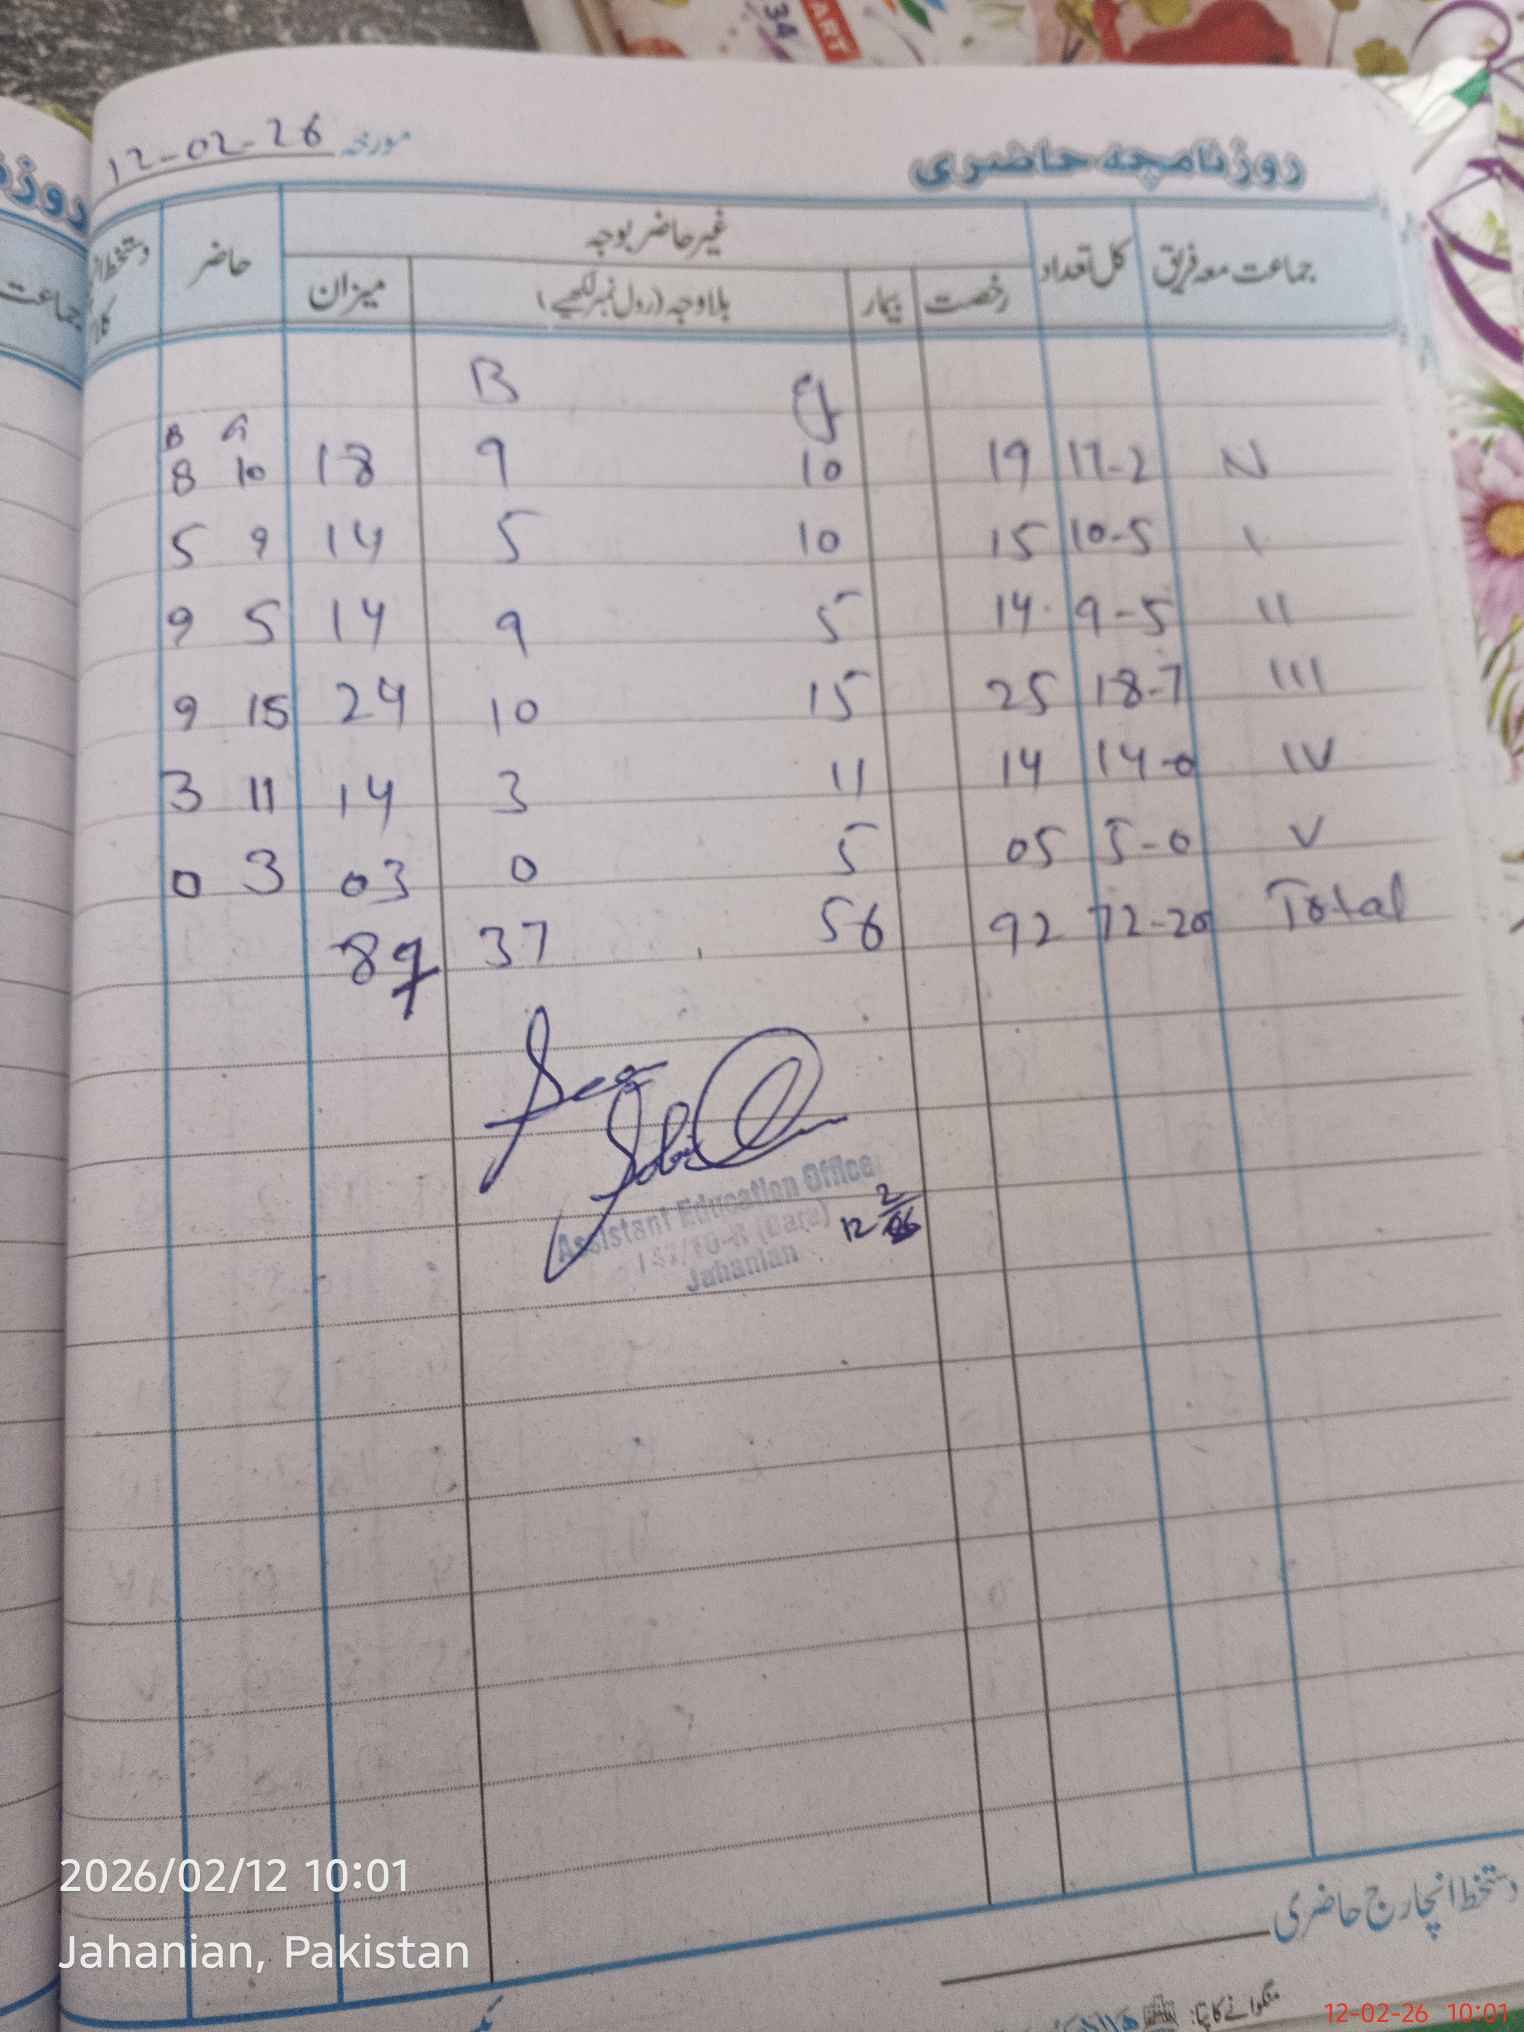 34
ART
روزنامچہ حاضری
مورخہ 12-02-26
جماعت معہ فریق کل تعداد غیر حاضر بوجہ حاضر دستخط
رخصت بیمار بلاوجہ (رول نمبر لکھیے) میزان
B
B G
N 17-2 19 10 9 18 10 8
I 10-5 15 10 5 14 9 5
II 9-5 14 5 9 14 5 9
III 18-7 25 15 10 24 15 9
IV 14-0 14 11 3 14 11 3
V 5-0 05 5 0 03 3 0
Total 72-20 92 56 37 87
Seen
Assistant Education Officer
157/10-R (Bara)
Jahanian
12 2/26
دستخط انچارج حاضری
منگوانے کا پتا:
روز
جماعت
2026/02/12 10:01
Jahanian, Pakistan
12-02-26 10:01